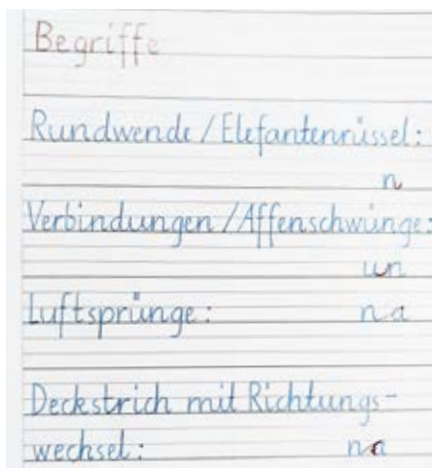 Begriffe
Rundwende/Elefantenrüssel:
n
Verbindungen/Affenschwünge:
un
Luftsprünge: n a
Deckstrich mit Richtungs-
wechsel: na